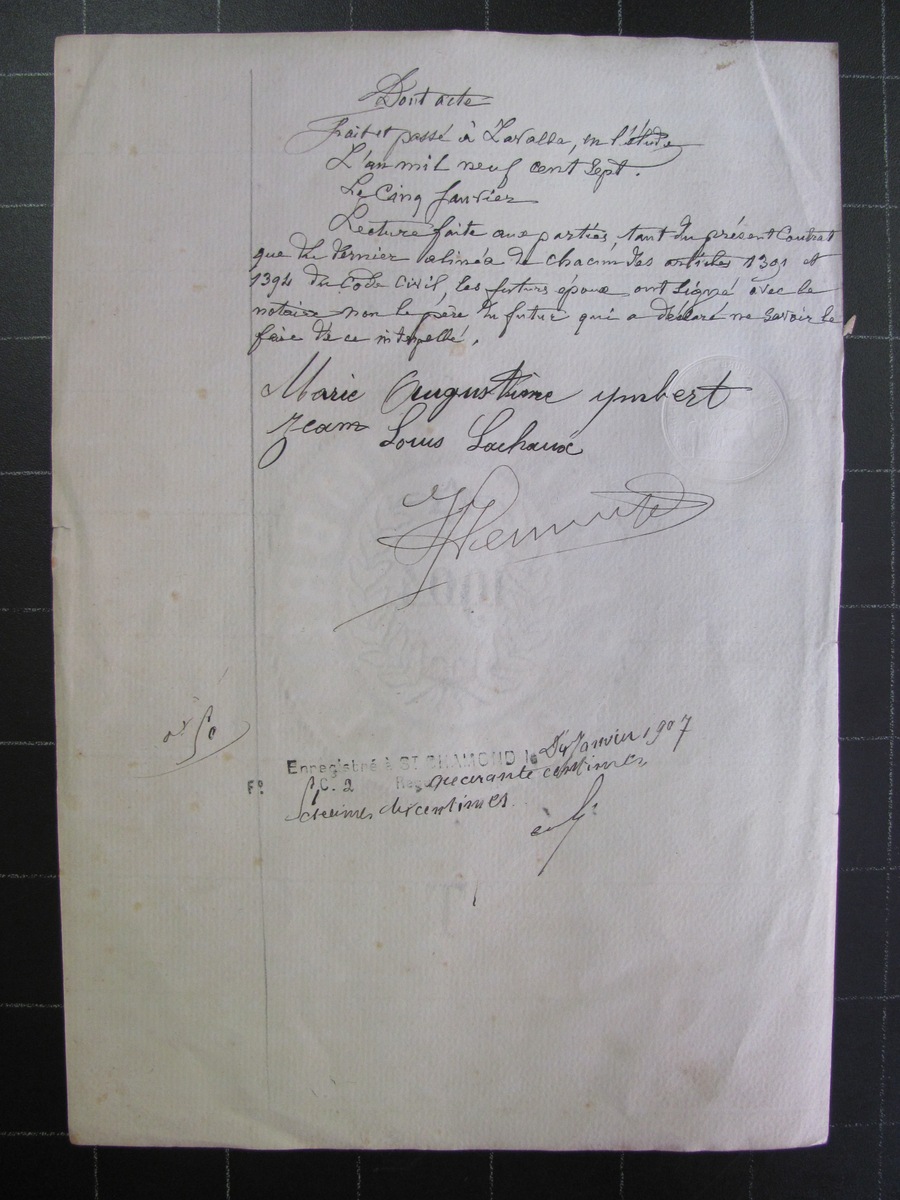 Dont acte
Fait et passé à Lavalla, en l'étude
L'an mil neuf cent sept.
Le Cinq Janvier
Lecture faite aux parties, tant du présent Contrat
que du dernier alinéa de chacun des articles 1391 et
1394 du Code Civil, les futurs époux ont signé avec le
notaire non le père du futur qui a déclaré ne savoir le
faire de ce interpellé.
Marie Augustine ymbert
Jean Louis Lachaux
Enregistré à ST CHAMOND le Janvier 1907
F° C. 2 Reçu quarante centimes
décimes dix centimes